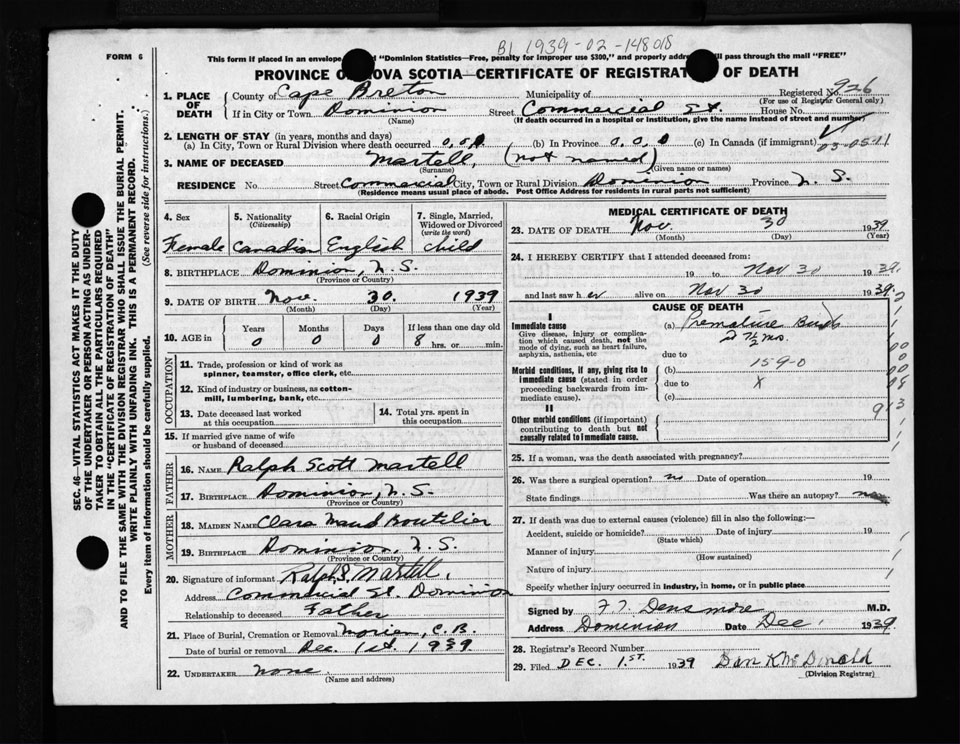 B1 1939-02-148018
FORM 6
This form if placed in an envelope "Dominion Statistics—Free, penalty for improper use $300," and properly addre will pass through the mail "FREE"
PROVINCE OVA SCOTIA—CERTIFICATE OF REGISTRAT OF DEATH
1. PLACE OF DEATH County of Cape Breton Municipality of Registered No. 926
(For use of Registrar General only)
If in City or Town Dominion Street Commercial St. House No.
(Name) (If death occurred in a hospital or institution, give the name instead of street and number)
2. LENGTH OF STAY (in years, months and days)
(a) In City, Town or Rural Division where death occurred 0,0,0 (b) In Province 0,0,0 (c) In Canada (if immigrant)
03-05-11
3. NAME OF DECEASED Martell, (not named)
(Surname) (Given name or names)
RESIDENCE No. Street Commercial City, Town or Rural Division Dominion Province N. S.
(Residence means usual place of abode. Post Office Address for residents in rural parts not sufficient)
4. Sex Female
5. Nationality (Citizenship) Canadian
6. Racial Origin English
7. Single, Married, Widowed or Divorced (write the word) child
8. BIRTHPLACE Dominion, N. S.
(Province or Country)
9. DATE OF BIRTH Nov. 30. 1939
(Month) (Day) (Year)
10. AGE in Years Months Days If less than one day old
0 0 0 8 hrs. or min.
OCCUPATION
11. Trade, profession or kind of work as spinner, teamster, office clerk, etc.
12. Kind of industry or business, as cotton-mill, lumbering, bank, etc.
13. Date deceased last worked at this occupation
14. Total yrs. spent in this occupation
15. If married give name of wife or husband of deceased
FATHER
16. NAME Ralph Scott Martell
17. BIRTHPLACE Dominion, N. S.
(Province or Country)
MOTHER
18. MAIDEN NAME Clara Maud Boutilier
19. BIRTHPLACE Dominion, N. S.
(Province or Country)
20. Signature of informant Ralph S. Martell,
Address Commercial St. Dominion
Relationship to deceased Father
21. Place of Burial, Cremation or Removal Morien, C. B.
Date of burial or removal Dec. 1st. 1939
22. UNDERTAKER none.
(Name and address)
MEDICAL CERTIFICATE OF DEATH
23. DATE OF DEATH Nov. 30 1939
(Month) (Day) (Year)
24. I HEREBY CERTIFY that I attended deceased from:
19 to Nov 30 1939.
and last saw her alive on Nov 30 1939.
CAUSE OF DEATH
I
Immediate cause
Give disease, injury or complication which caused death, not the mode of dying, such as heart failure, asphyxia, asthenia, etc
(a) Premature Birth
7 1/2 mo.
due to
Morbid conditions, if any, giving rise to immediate cause (stated in order proceeding backwards from immediate cause).
(b) 159-0
due to X
(c)
II
Other morbid conditions (if important) contributing to death but not causally related to immediate cause.
25. If a woman, was the death associated with pregnancy?
26. Was there a surgical operation? no Date of operation 19
State findings Was there an autopsy?
27. If death was due to external causes (violence) fill in also the following:—
Accident, suicide or homicide? Date of injury 19
(State which)
Manner of injury
(How sustained)
Nature of injury
Specify whether injury occurred in industry, in home, or in public place
Signed by F T Densmore M.D.
Address Dominion Date Dec 1 1939.
28. Registrar's Record Number
29. Filed DEC. 1ST. 1939 Dan K McDonald
(Division Registrar)
SEC. 46—VITAL STATISTICS ACT MAKES IT THE DUTY
OF THE UNDERTAKER OR PERSON ACTING AS UNDER-
TAKER TO OBTAIN ALL THE PARTICULARS REQUIRED
IN THE "CERTIFICATE OF REGISTRATION OF DEATH"
AND TO FILE THE SAME WITH THE DIVISION REGISTRAR WHO SHALL ISSUE THE BURIAL PERMIT.
WRITE PLAINLY WITH UNFADING INK. THIS IS A PERMANENT RECORD.
Every item of information should be carefully supplied. (See reverse side for instructions.)